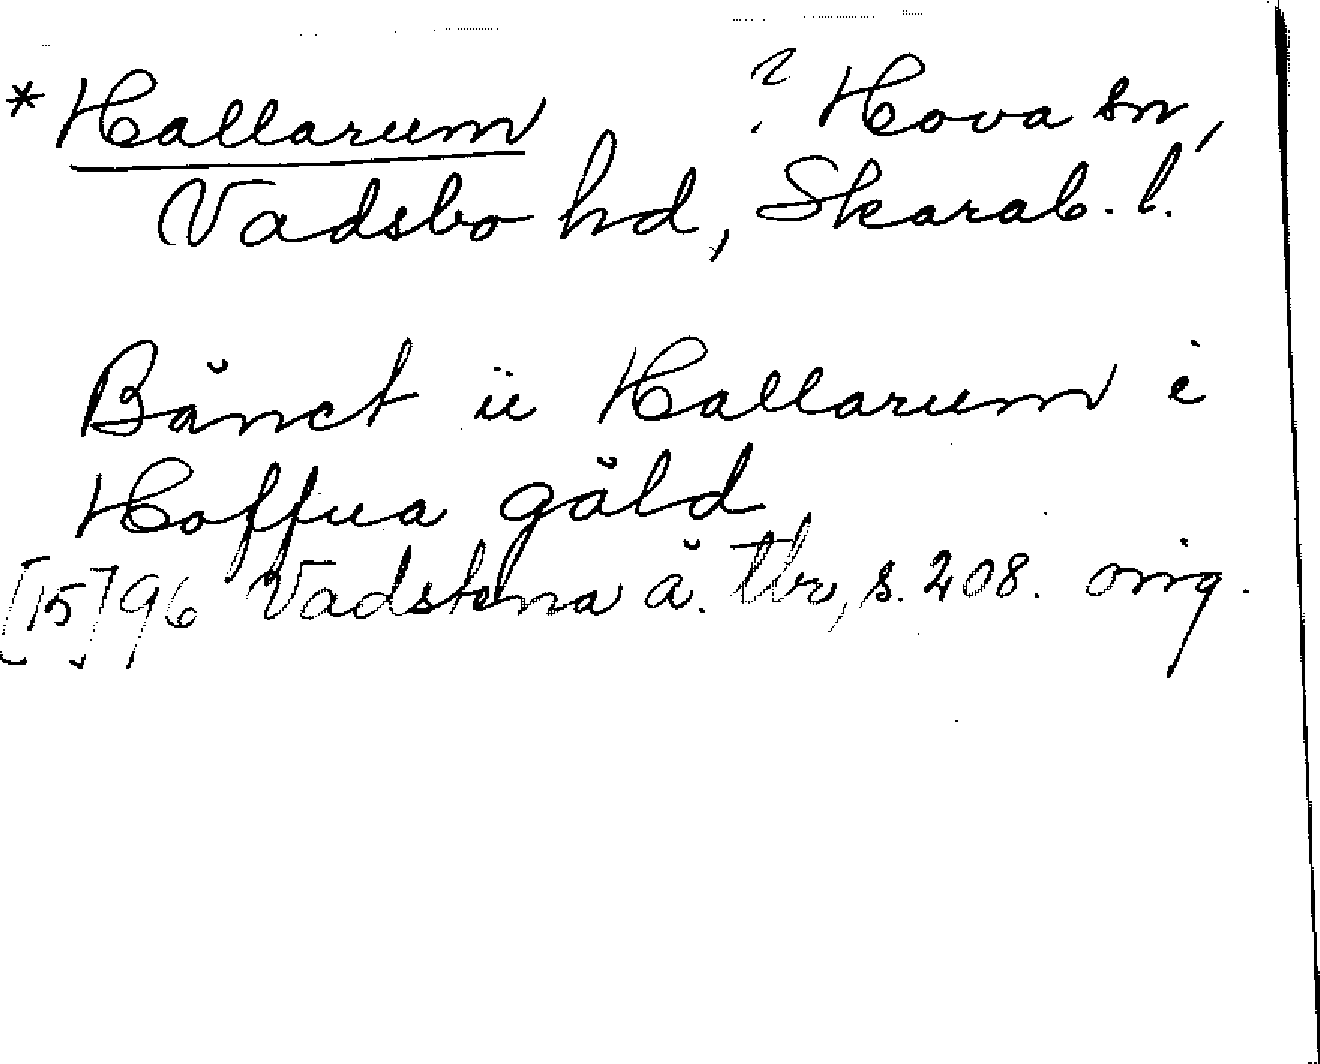 *Hallarum ? Hova sn,
Vadsbo hd, Skarab. l.
Bänct ii Hallarum i
Hoffua gäld
[15]96 Vadstena ä. tbr, s. 208. orig.